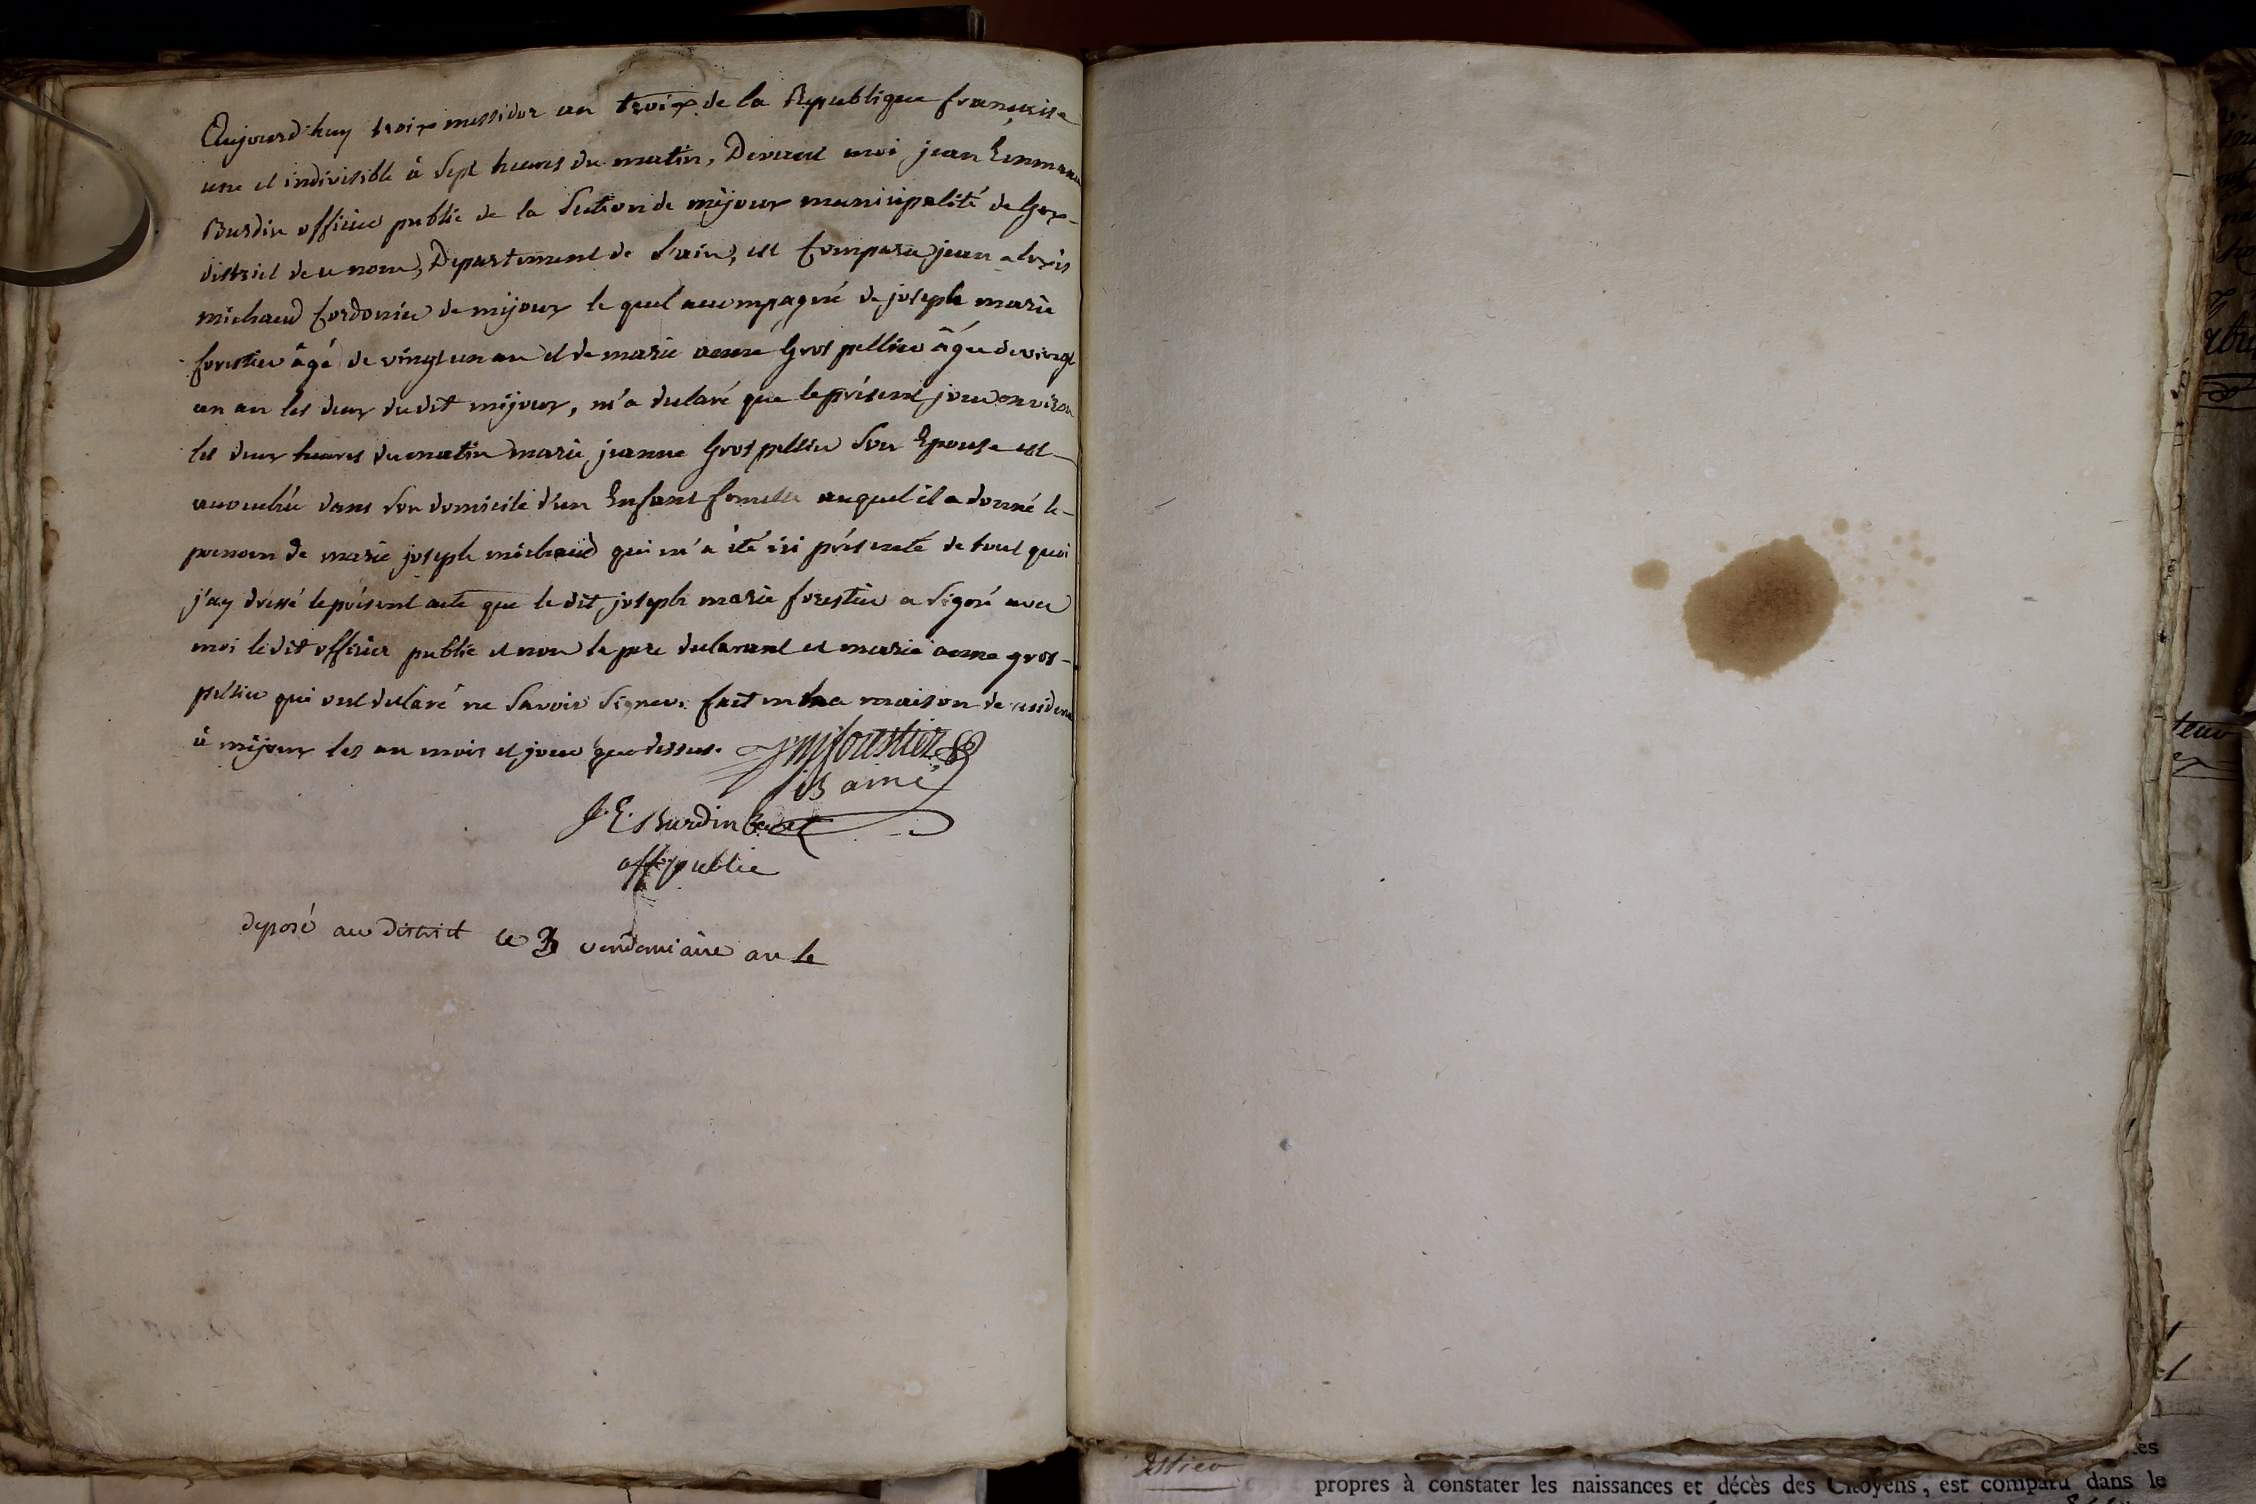 Aujourd'huy troix messidor an troix de la Republique française
une et indivisible à sept heures du matin, Devant moi jean Emmanuel
Burdin officier public de la Section de mijoux municipalité de Gex
district de ce nom, Departement de l'ain, est comparu jean alexis
michaud Cordonier de mijoux le quel accompagné de joseph marie
forestier âgé de vingt un an et de marie anne Gros pellier âgée de vingt
un an les deux du dit mijoux, m'a declaré que le présent jour environ
les deux heures du matin marie jeanne Gros pellier Son Epouse est
acouchée dans Son domicile d'un Enfant femelle auquel il a donné le
prenom de marie joseph michaud qui m'a été ici présenté de tout quoi
j'ay dressé le présent acte que le dit joseph marie forestier a Signé avec
moi le dit officier public et non le pere declarant et marie anne gros-
pellier qui ont declaré ne Savoir Signer. fait en ma maison de residence
à mijoux les an mois et jour que dessus. jmforestier
ainé
J. E. Burdin
off. public
deposé au District ce 3 vendemiaire an 4e
teur
propres à constater les naissances et décès des Citoyens, est comparu dans le